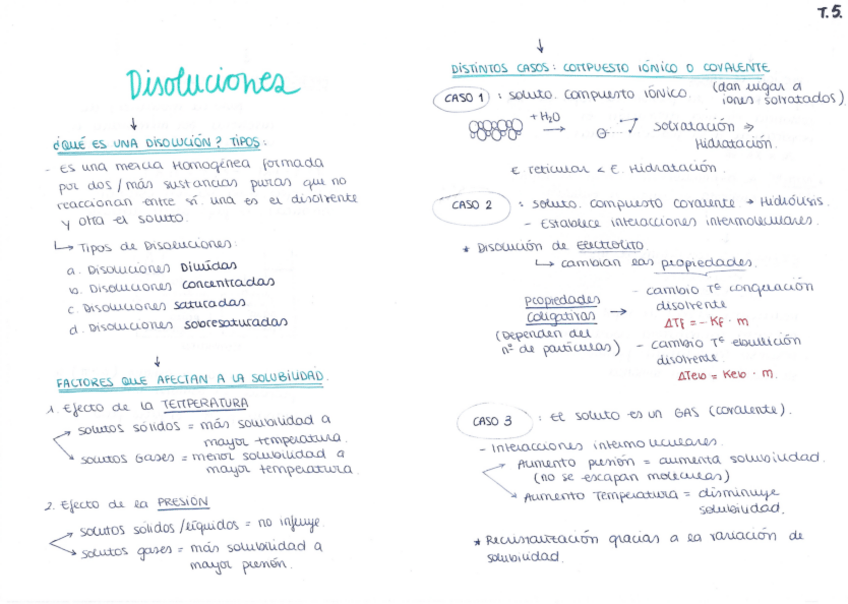 T.5.
Disoluciones
¿QUÉ ES UNA DISOLUCIÓN? TIPOS:
- Es una mezcla Homogénea formada
por dos/más sustancias puras que no
reaccionan entre sí. una es el disolvente
y otra el soluto.
↳ Tipos de Disoluciones:
a. Disoluciones Diluidas
b. Disoluciones concentradas
c. Disoluciones saturadas
d. Disoluciones sobresaturadas
FACTORES QUE AFECTAN A LA SOLUBILIDAD.
1. Efecto de la TEMPERATURA
solutos sólidos = más solubilidad a
mayor temperatura.
solutos Gases = menor solubilidad a
mayor temperatura.
2. Efecto de la PRESIÓN
solutos sólidos/líquidos = no influye.
solutos gases = más solubilidad a
mayor presión.
DISTINTOS CASOS: COMPUESTO IÓNICO O COVALENTE
CASO 1 : soluto. compuesto iónico. (dan lugar a
iones solvatados)
+ H₂O → solvatación ⇒
Hidratación.
E reticular < E. Hidratación.
CASO 2 : soluto. compuesto covalente → Hidrólisis.
- Establece interacciones intermoleculares.
* Disolución de Electrolito.
↳ cambian las propiedades.
Propiedades
Coligativas →
(Dependen del
nº de partículas)
- cambio Tª congelación
disolvente
ΔTf = - Kf · m
- cambio Tª ebullición
disolvente.
ΔTeb = Keb · m.
CASO 3 : El soluto es un GAS (covalente).
- Interacciones intermoleculares.
Aumento presión = aumenta solubilidad.
(no se escapan moléculas)
Aumento Temperatura = disminuye
solubilidad.
* Recristalización gracias a la variación de
solubilidad.